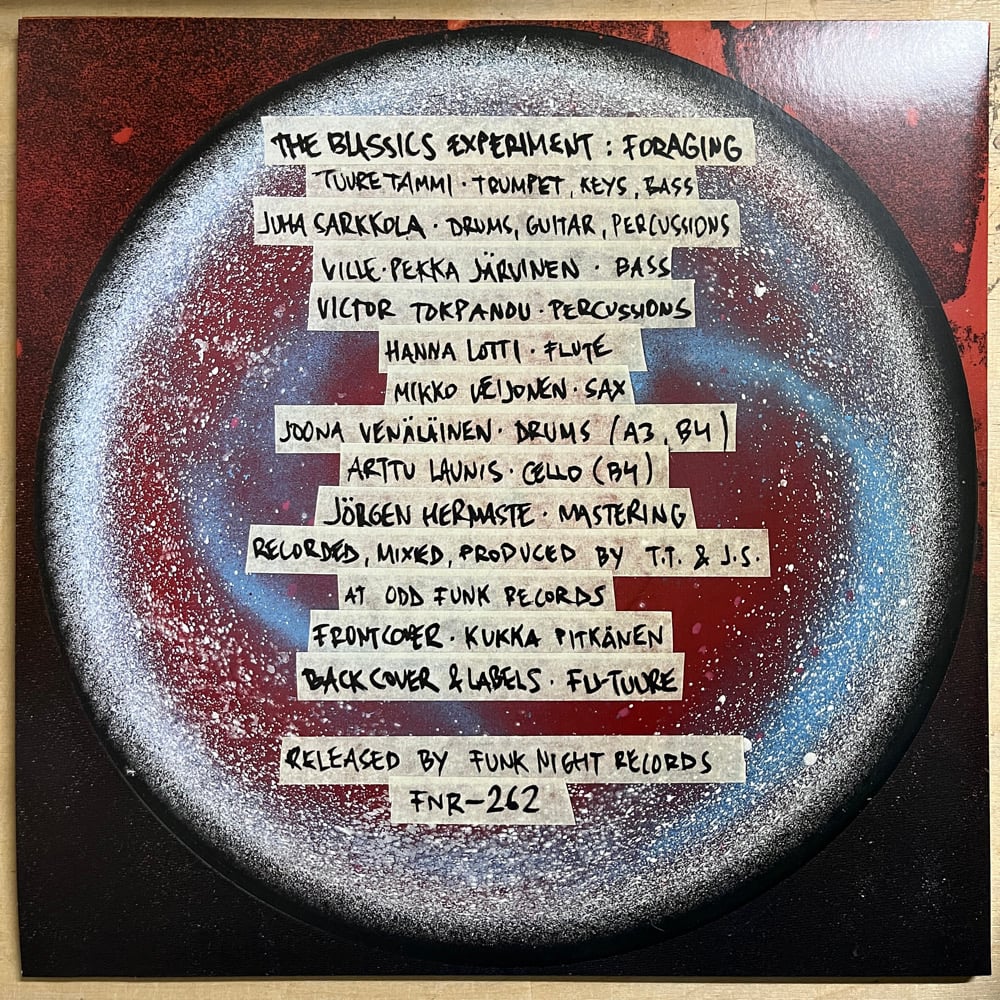 THE BLASSICS EXPERIMENT : FORAGING
TUURE TAMMI · TRUMPET, KEYS, BASS
JUHA SARKKOLA · DRUMS, GUITAR, PERCUSSIONS
VILLE-PEKKA JÄRVINEN · BASS
VICTOR TOKPANOU · PERCUSSIONS
HANNA LOTTI · FLUTE
MIKKO VEIJONEN · SAX
JOONA VENÄLÄINEN · DRUMS (A3, B4)
ARTTU LAUNIS · CELLO (B4)
JÖRGEN HERMASTE · MASTERING
RECORDED, MIXED, PRODUCED BY T.T. & J.S.
AT ODD FUNK RECORDS
FRONTCOVER · KUKKA PITKÄNEN
BACK COVER & LABELS · FU-TUURE
RELEASED BY FUNK NIGHT RECORDS
FNR-262